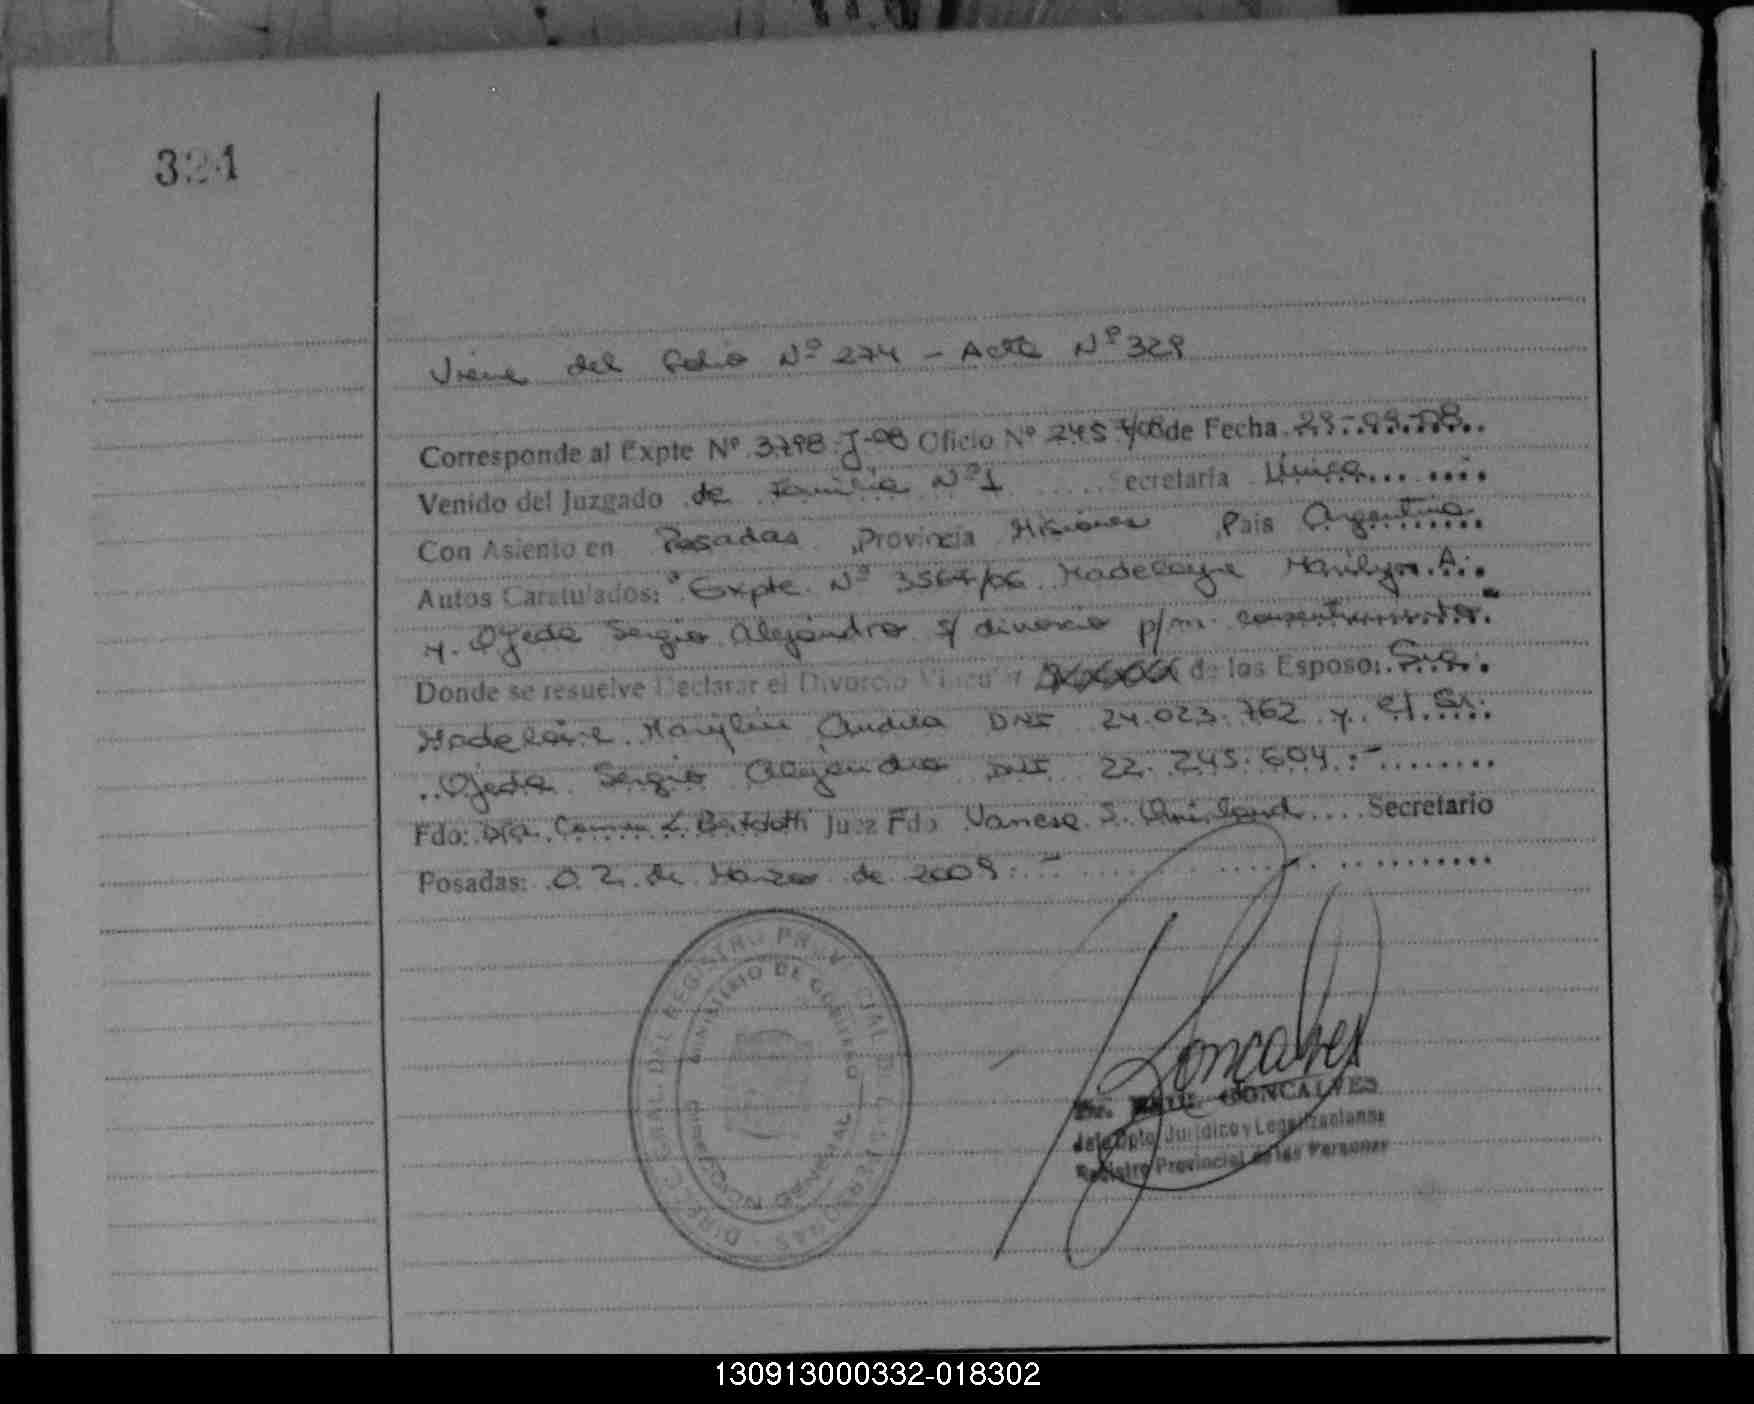 321
Viene del Folio Nº 274 - Acta Nº 329
Corresponde al Expte Nº 3798 J-08 Oficio Nº 245 /08 de Fecha 29-09-08
Venido del Juzgado de Familia Nº 1 Secretaría Única
Con Asiento en Posadas, Provincia Misiones, País Argentina
Autos Caratulados: "Expte. Nº 3567/06 Madelayne Marilyn A.
y Ojeda Sergio Alejandro s/ divorcio p/m. consentimiento"
Donde se resuelve Declarar el Divorcio Vincular de los Esposos: Sra.
Marylin DNI 24.023.762 y el Sr.
Ojeda Sergio Alejandro DNI 22.245.604.-
Fdo: Dra. Carmen L. Juez Fdo Vanesa S. Secretario
Posadas: 02 de Marzo de 2009.-
DIRECC. GENERAL DEL REGISTRO PROVINCIAL DE LAS PERSONAS
MINISTERIO DE GOBIERNO
Goncalves
GONCALVES
Jefe Dpto. Jurídico y Legalizaciones
Registro Provincial de las Personas
130913000332-018302